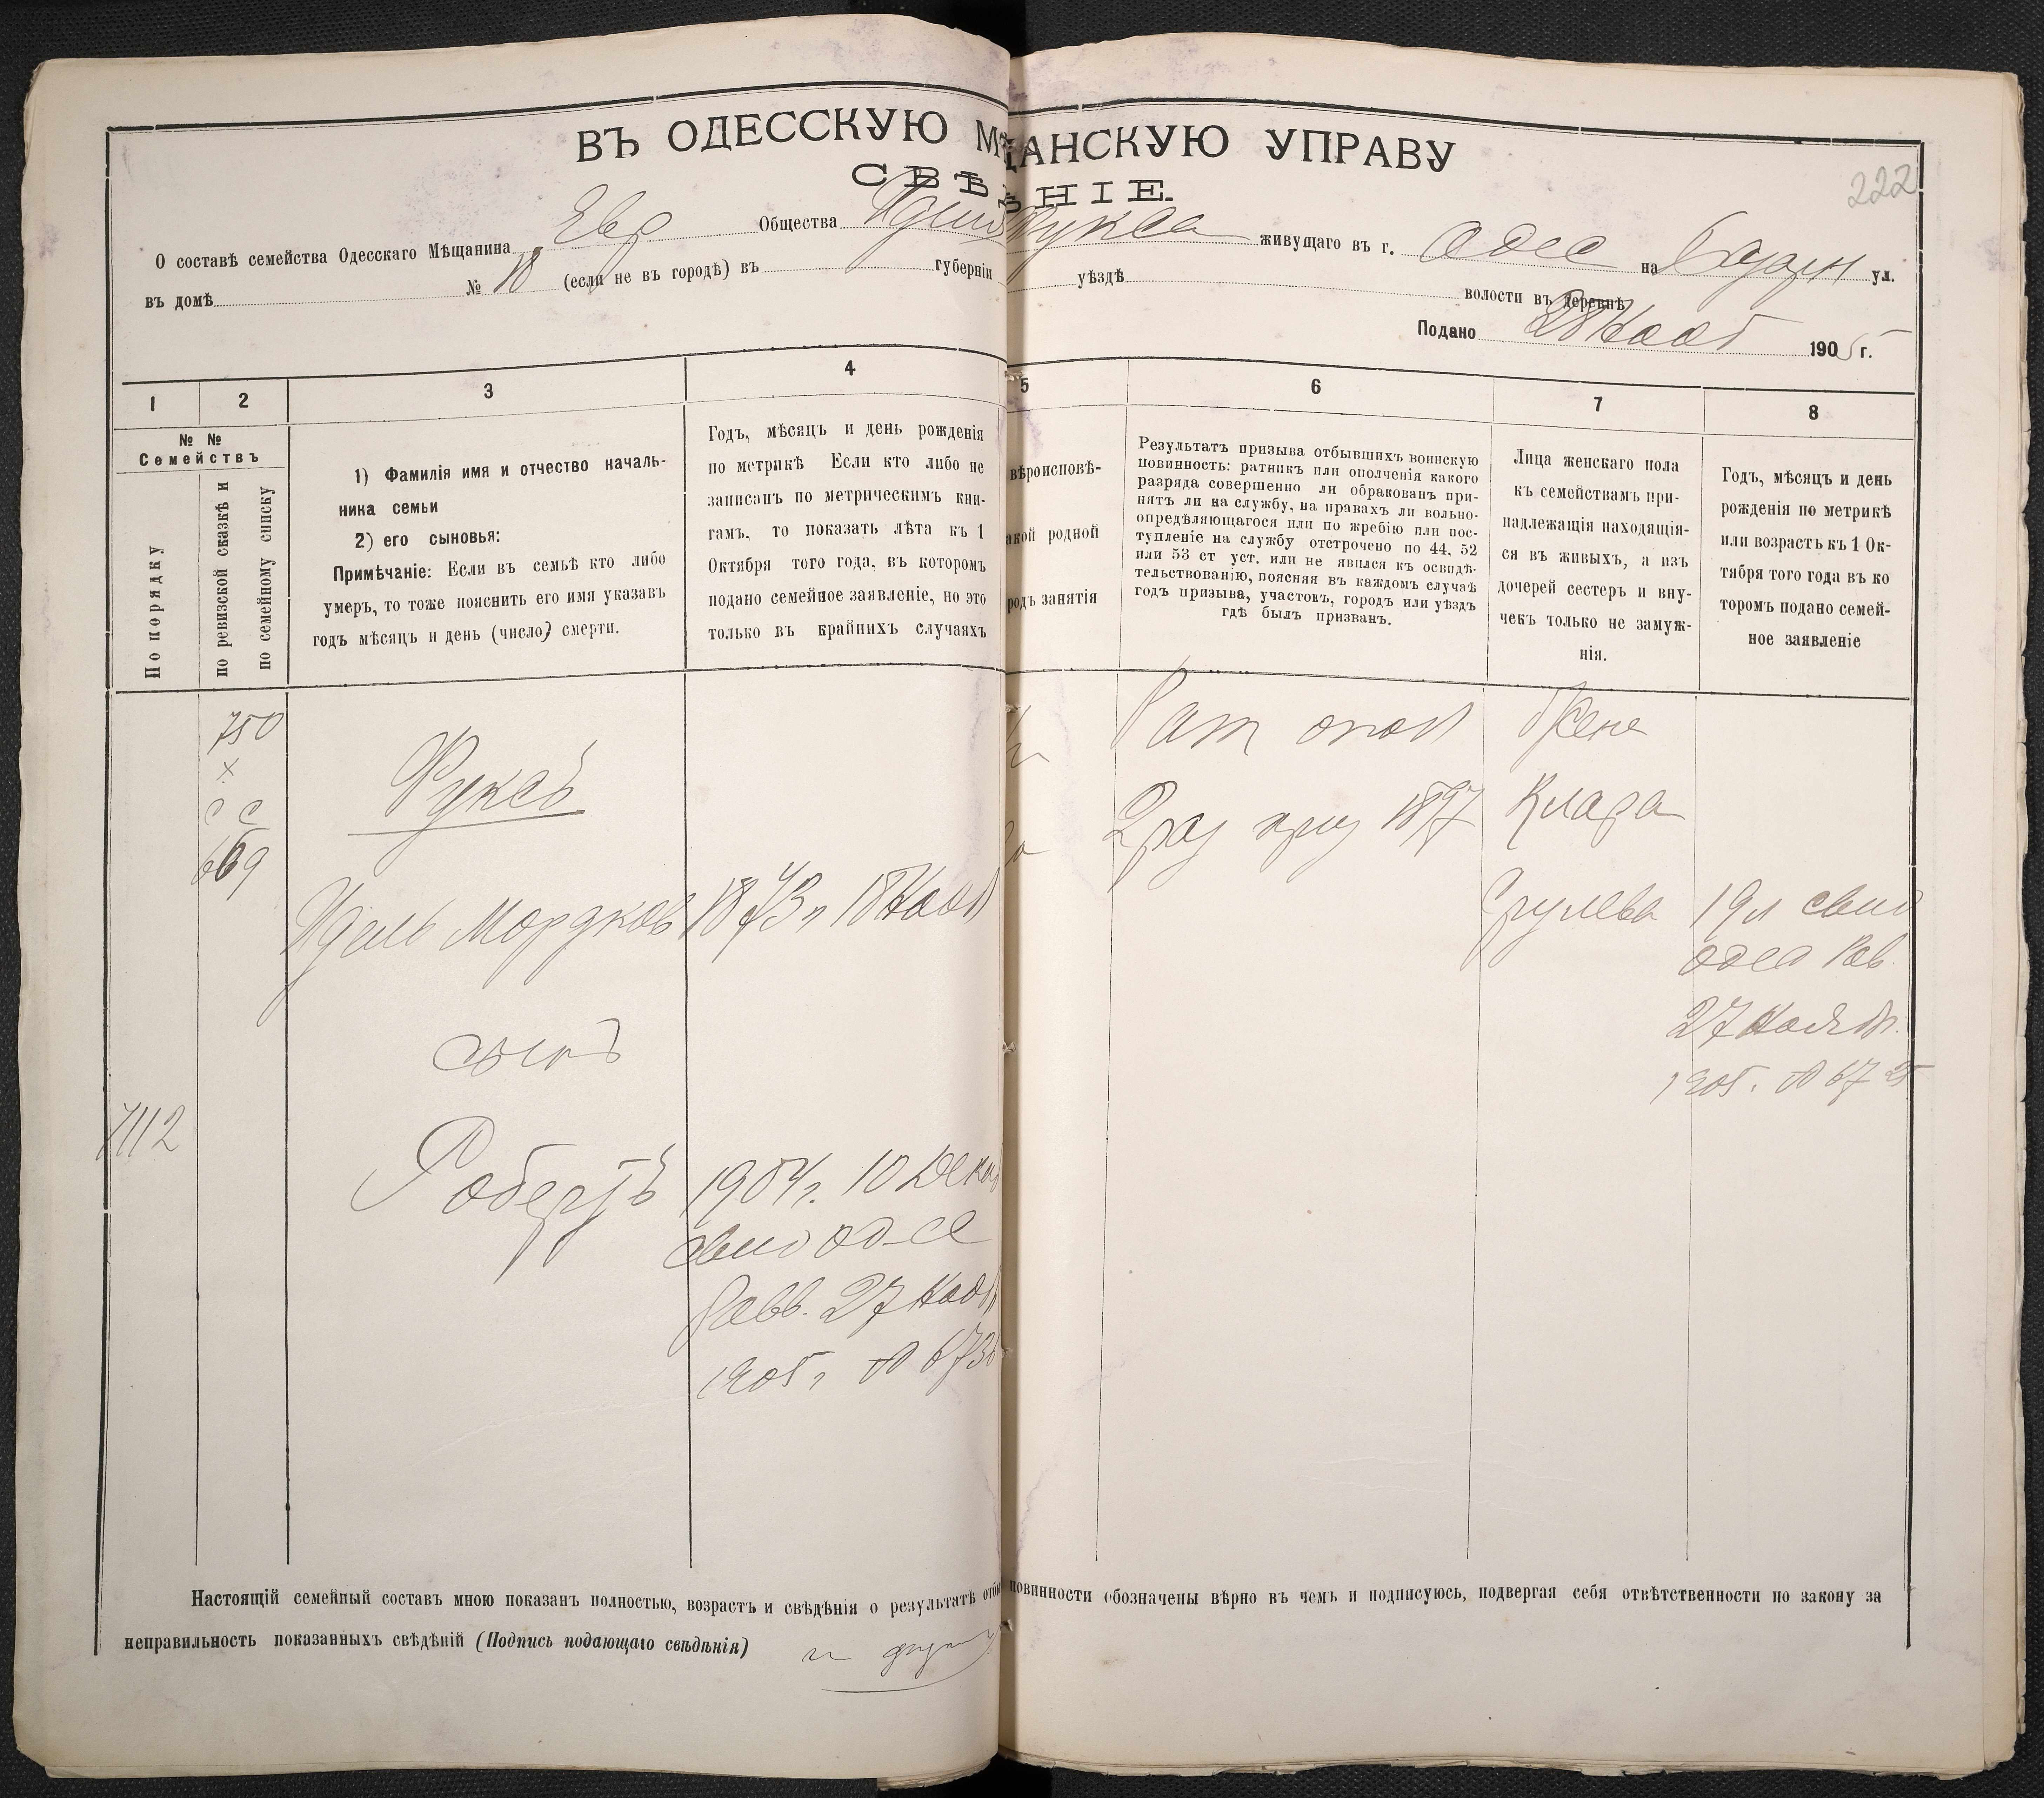 ВЪ ОДЕССКУЮ МѢЩАНСКУЮ УПРАВУ
СВѢДѢНІЕ.
222
О составѣ семейства Одесскаго Мѣщанина Евр Общества Идель Фукса живущаго въ г. Одес на Базарн ул.
въ домѣ № 18 (если не въ городѣ) въ губерніи уѣздѣ волости въ деревнѣ
Подано 28 Нояб 1905 г.
1 2 3 4 5 6 7 8
№ №
Семействъ
По порядку
по ревизской сказкѣ и
по семейному списку
1) Фамилія имя и отчество началь-
ника семьи
2) его сыновья:
Примѣчаніе: Если въ семьѣ кто либо
умеръ, то тоже пояснить его имя указавъ
годъ мѣсяцъ и день (число) смерти.
Годъ, мѣсяцъ и день рожденія
по метрикѣ Если кто либо не
записанъ по метрическимъ кни-
гамъ, то показать лѣта къ 1
Октября того года, въ которомъ
подано семейное заявленіе, но это
только въ крайнихъ случаяхъ
вѣроисповѣ-
акой родной
родъ занятія
Результатъ призыва отбывшихъ воинскую
повинность: ратникъ или ополченія какого
разряда совершенно ли обракованъ при-
нятъ ли на службу, на правахъ ли вольно-
опредѣляющагося или по жребію или пос-
тупленіе на службу отстрочено по 44, 52
или 53 ст уст. или не явился къ освидѣ-
тельствованію, поясняя въ каждомъ случаѣ
годъ призыва, участокъ, городъ или уѣздъ
гдѣ былъ призванъ.
Лица женскаго пола
къ семействамъ при-
надлежащія находящія-
ся въ живыхъ, а изъ
дочерей сестеръ и вну-
чекъ только не замуж-
нія.
Годъ, мѣсяцъ и день
рожденія по метрикѣ
или возрастъ къ 1 Ок-
тября того года въ ко
торомъ подано семей-
ное заявленіе
750
х
с с
669
Фуксъ
Идель Мордков 1873 г 18 Нояб
Рат опол
2 раз приз 1897
Жена
Клара
Срулева 19 л свид
одес Рав.
27 Ноябр.
1905. № 6725
сынъ
7112
Робертъ 1904 г. 10 Декаб
свид одес
Равв. 27 Нояб
1905 г №
Настоящій семейный составъ мною показанъ полностью, возрастъ и свѣдѣнія о результатѣ отбы повинности обозначены вѣрно въ чемъ и подписуюсь, подвергая себя отвѣтственности по закону за
неправильность показанныхъ свѣдѣній (Подпись подающаго свѣдѣнія)